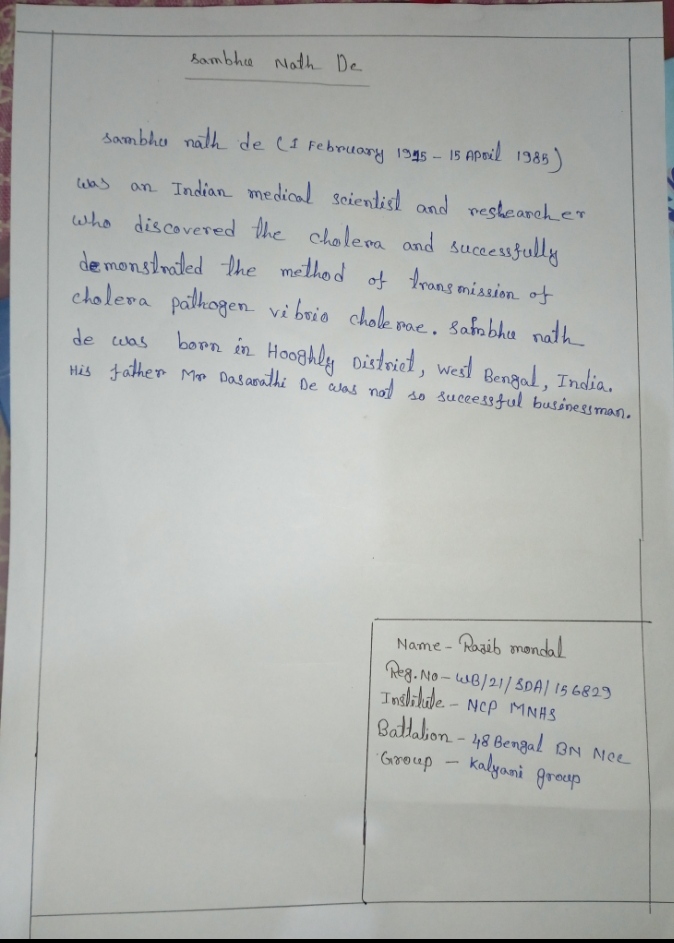 Sambhu Nath De
Sambhu nath de (1 February 1915 - 15 April 1985)
was an Indian medical scientist and reshearcher
who discovered the cholera and successfully
demonstrated the method of transmission of
cholera pathogen vibrio cholerae. Sambhu nath
de was born in Hooghly District, West Bengal, India.
His father Mr Dasarathi De was not so successful businessman.
Name - Razib mondal
Reg. No - WB/21/SDA/156829
Institute - NCP MNHS
Battalion - 48 Bengal BN Ncc
Group - Kalyani group